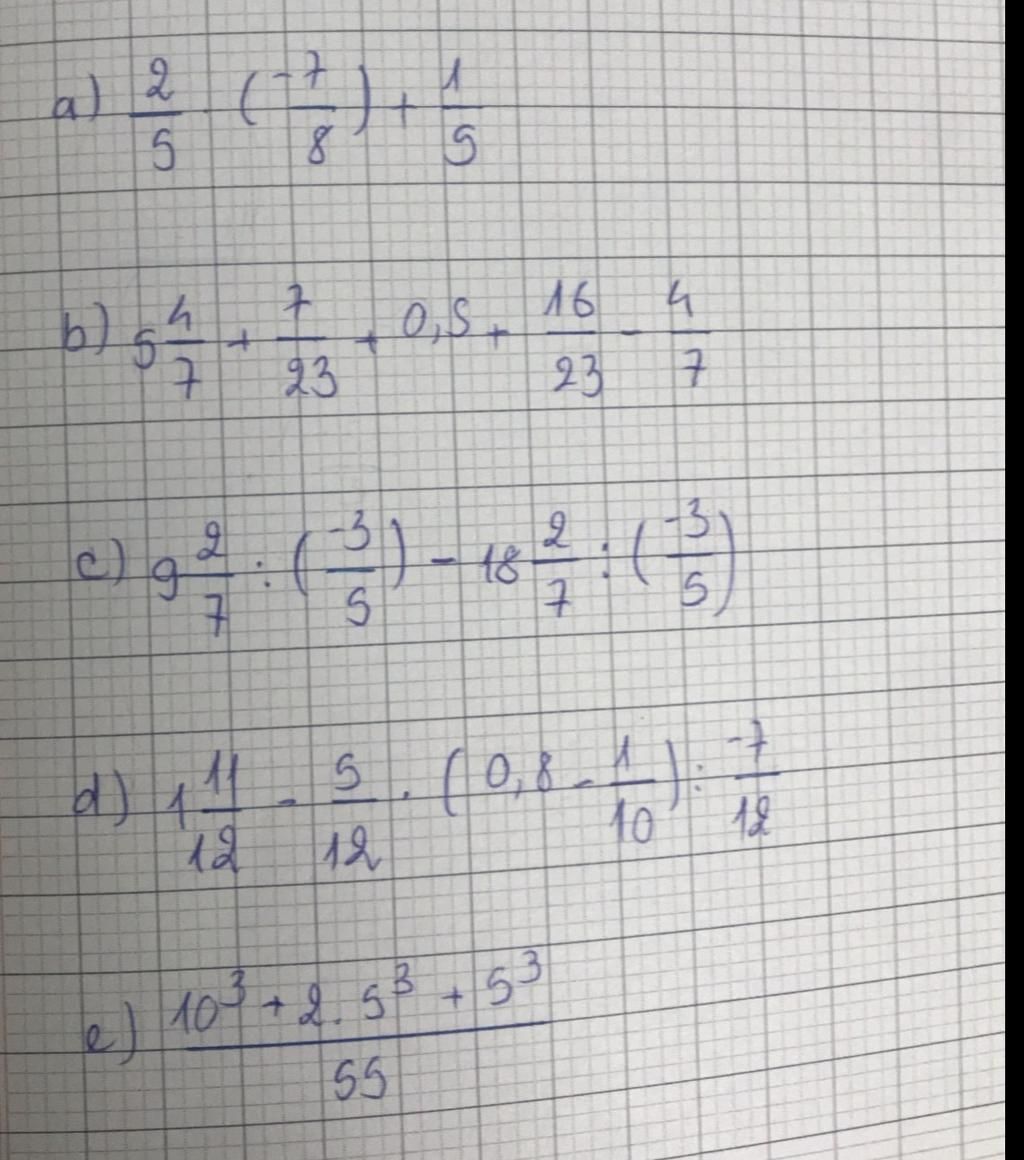 a) 2/5 - (-7/8) + 1/5
b) 5 4/7 + 7/23 + 0,5 + 16/23 - 4/7
c) 9 2/7 : (-3/5) - 18 2/7 : (-3/5)
d) 1 11/12 - 5/12 . (0,8 - 1/10) : -7/12
e) (10³ + 2. 5³ + 5³)/55